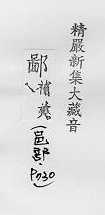 精嚴新集大藏音
鄙 補美(邑部·P030)